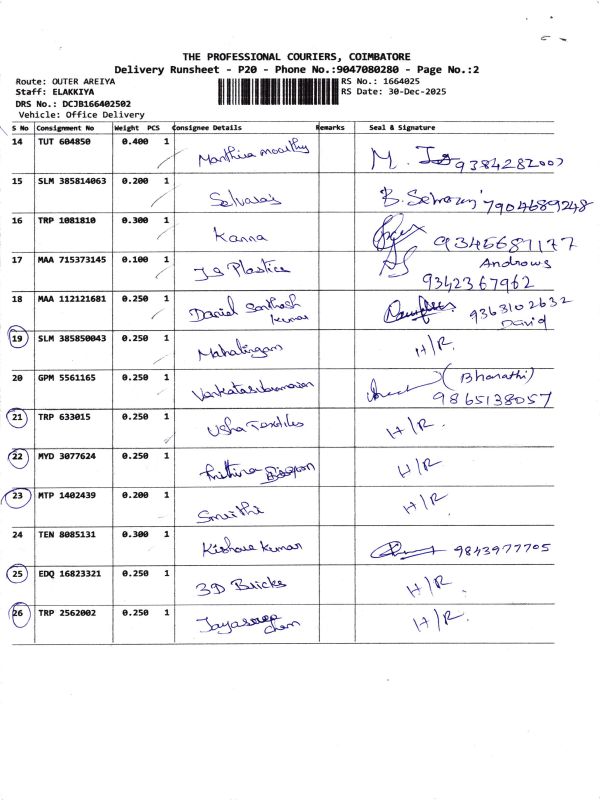 THE PROFESSIONAL COURIERS, COIMBATORE
Delivery Runsheet - P20 - Phone No.:9047080280 - Page No.:2
Route: OUTER AREIYA RS No.: 1664025
Staff: ELAKKIYA RS Date: 30-Dec-2025
DRS No.: DCJB166402502
Vehicle: Office Delivery
S No Consignment No Weight PCS Consignee Details Remarks Seal & Signature
14 TUT 604850 0.400 1 Manthira moorthy M.
15 SLM 385814063 0.200 1 Selvaraj B. Selvaraj 7904689248
16 TRP 1081810 0.300 1 Kanna 9345681177
17 MAA 715373145 0.100 1 JS Plastics Androws
9342367962
18 MAA 112121681 0.250 1 Daniel Santhosh 9363102632
kumar David
19 SLM 385850043 0.250 1 Mahalingam H/R.
20 GPM 5561165 0.250 1 (Bharathi)
9865138057
21 TRP 633015 0.250 1 Usha Textiles H/R.
22 MYD 3077624 0.250 1 H/R
23 MTP 1402439 0.200 1 Smrithi H/R
24 TEN 8085131 0.300 1 Kishore kumar 9843977705
25 EDQ 16823321 0.250 1 3D Bricks H/R.
26 TRP 2562002 0.250 1 H/R.